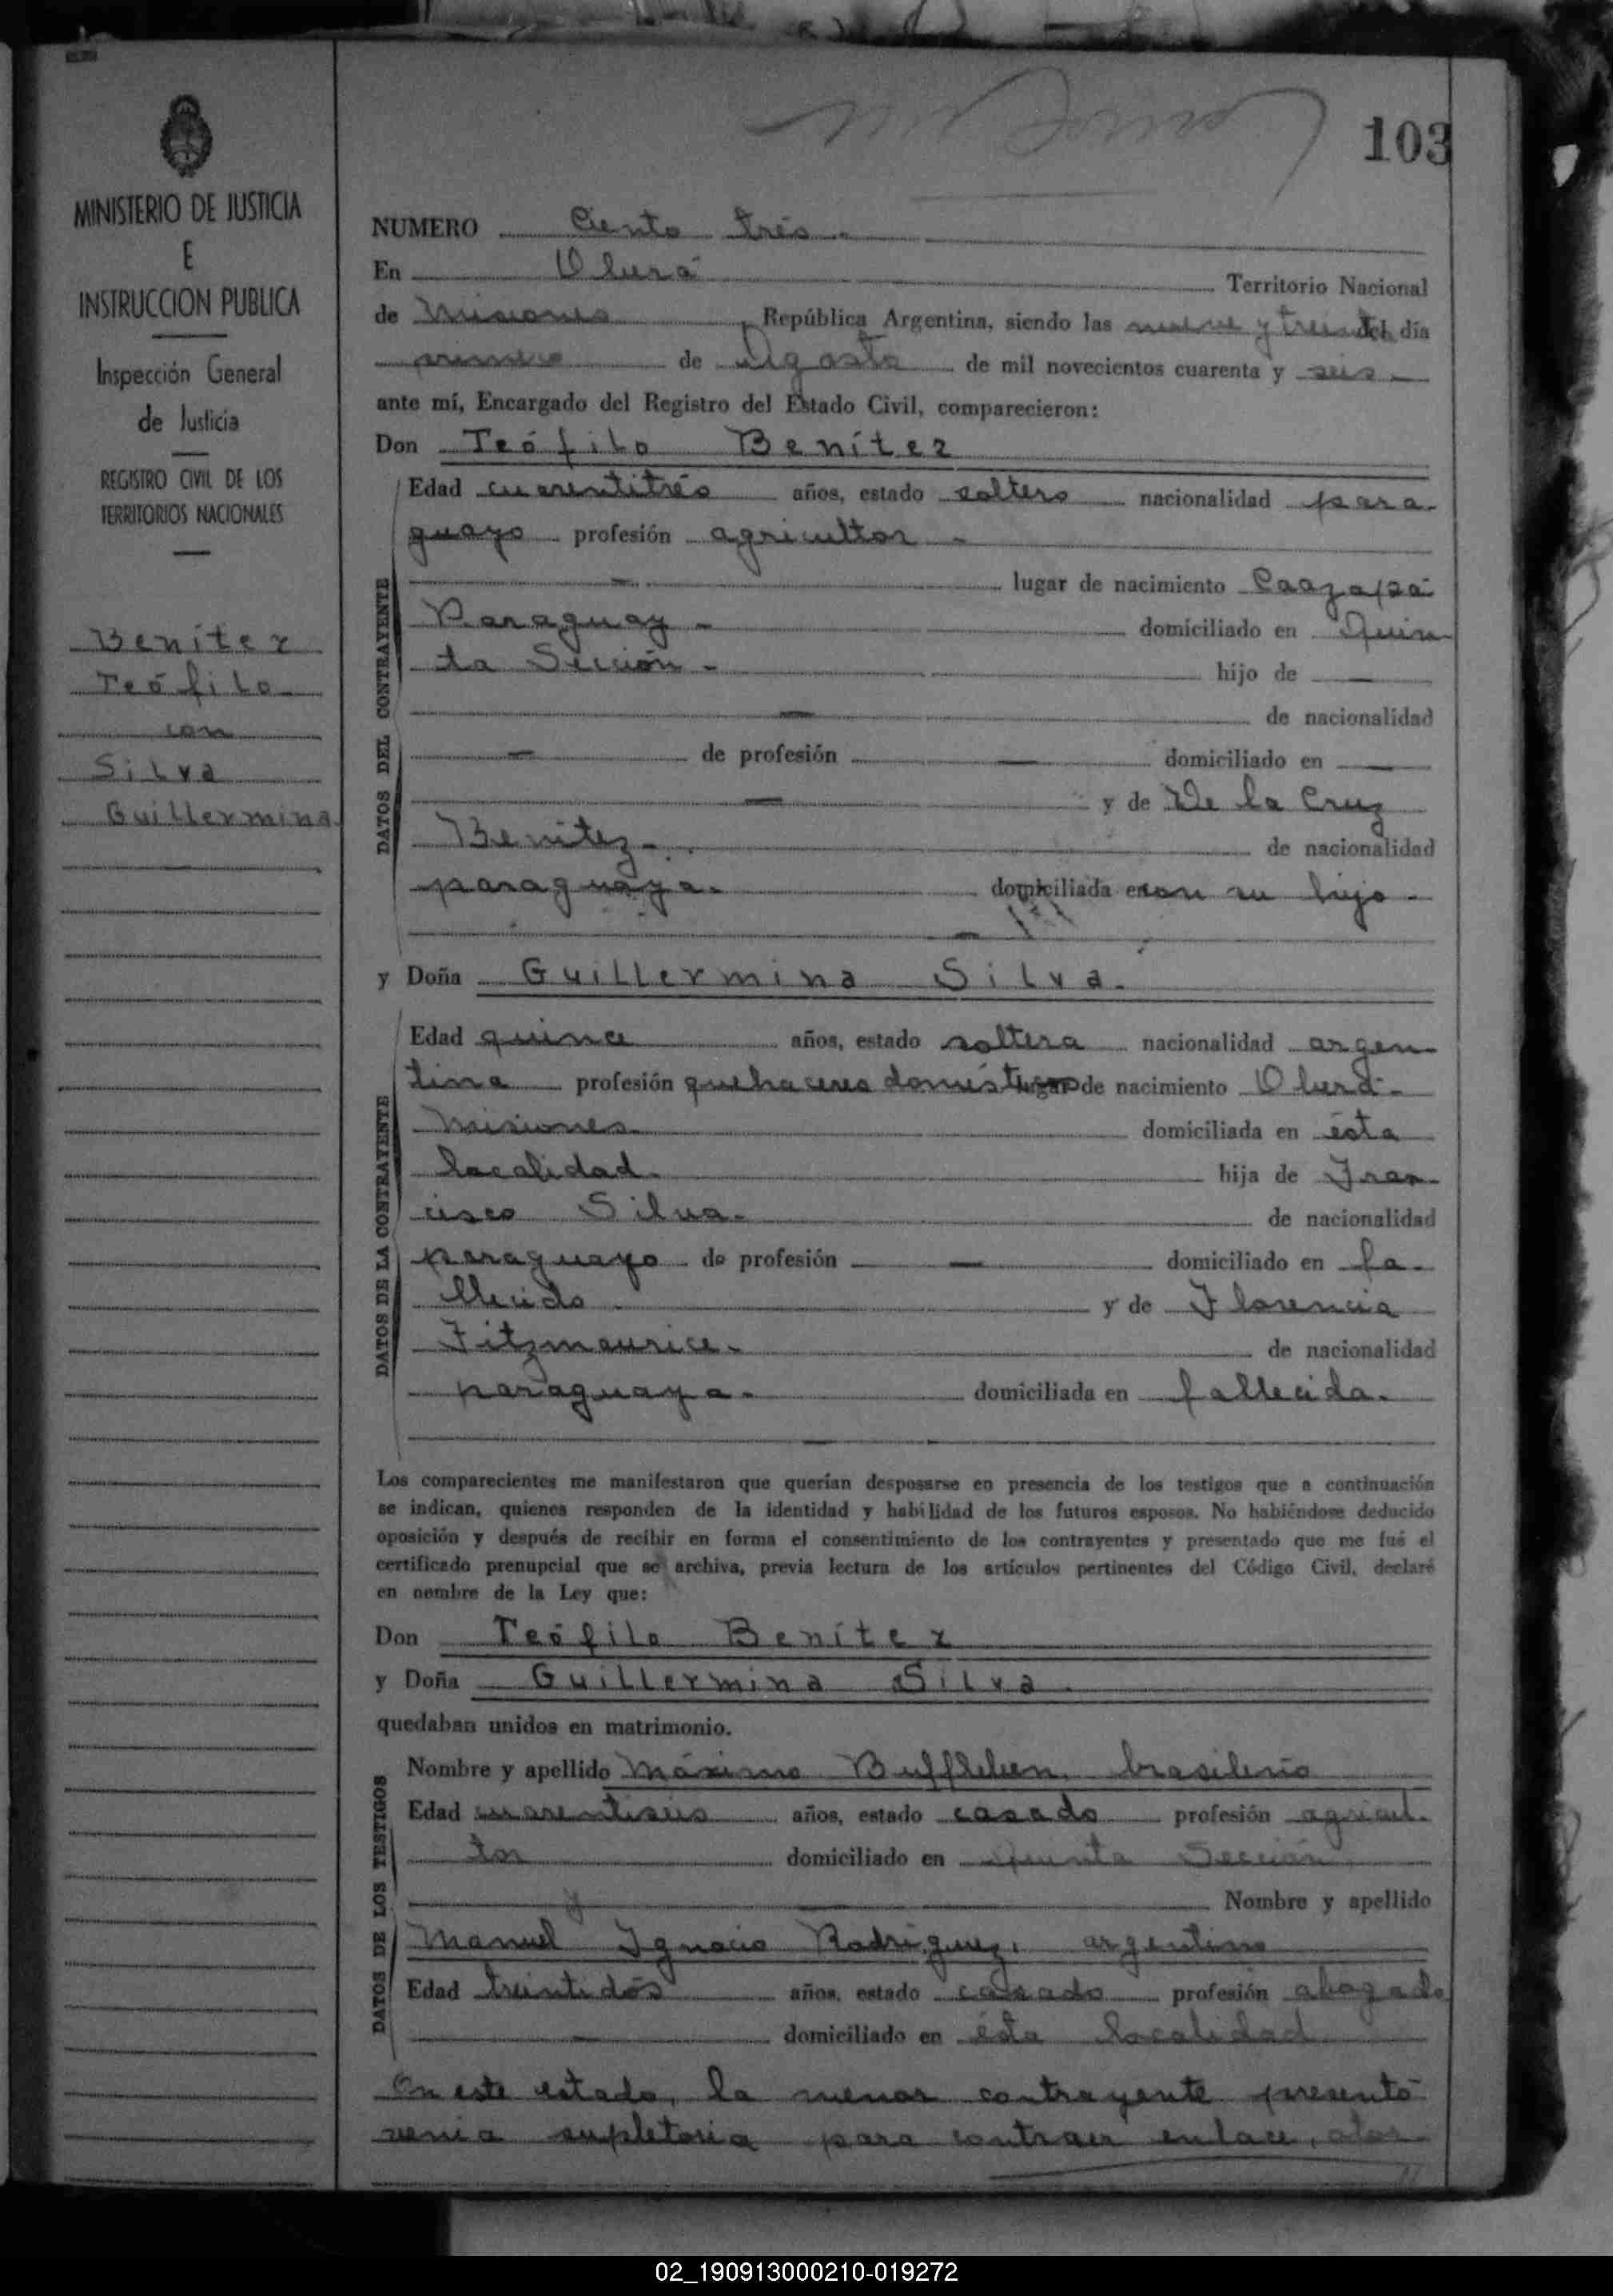 103
MINISTERIO DE JUSTICIA
E
INSTRUCCION PUBLICA
Inspección General
de Justicia
REGISTRO CIVIL DE LOS
TERRITORIOS NACIONALES
Benítez
Teófilo
con
Silva
Guillermina
NUMERO Ciento trés.-
En Oberá Territorio Nacional
de Misiones, República Argentina, siendo las nueve y treinta del día
primero de Agosto de mil novecientos cuarenta y seis.-
ante mí, Encargado del Registro del Estado Civil, comparecieron:
Don Teófilo Benítez
DATOS DEL CONTRAYENTE
Edad cuarentitrés años, estado soltero nacionalidad para-
guayo profesión agricultor -
- lugar de nacimiento Caazapá
Paraguay - domiciliado en Quin
ta Sección - hijo de —
— de nacionalidad
— de profesión — domiciliado en —
— y de De la Cruz
Benitez - de nacionalidad
paraguaya. domiciliada en con su hijo -
—
y Doña Guillermina Silva.
DATOS DE LA CONTRAYENTE
Edad quince años, estado soltera nacionalidad argen-
tina profesión quehaceres domésticos lugar de nacimiento Oberá-
Misiones domiciliada en ésta
localidad. hija de Fran-
cisco Silva. de nacionalidad
paraguayo de profesión — domiciliado en fa-
llecido y de Florencia
Fitzmaurice. de nacionalidad
paraguaya. domiciliada en fallecida.
—
Los comparecientes me manifestaron que querían desposarse en presencia de los testigos que a continuación
se indican, quienes responden de la identidad y habilidad de los futuros esposos. No habiéndose deducido
oposición y después de recibir en forma el consentimiento de los contrayentes y presentado que me fué el
certificado prenupcial que se archiva, previa lectura de los artículos pertinentes del Código Civil, declaré
en nombre de la Ley que:
Don Teófilo Benítez
y Doña Guillermina Silva.
quedaban unidos en matrimonio.
DATOS DE LOS TESTIGOS
Nombre y apellido Máximo brasileño
Edad cuarentiseis años, estado casado profesión agricul-
tor domiciliado en Quinta Sección
y — Nombre y apellido
Manuel Ignacio Rodriguez, argentino
Edad treintidós años, estado casado profesión abogado
— domiciliado en ésta localidad
En este estado, la menor contrayente presentó
venia supletoria para contraer enlace,
02_190913000210-019272